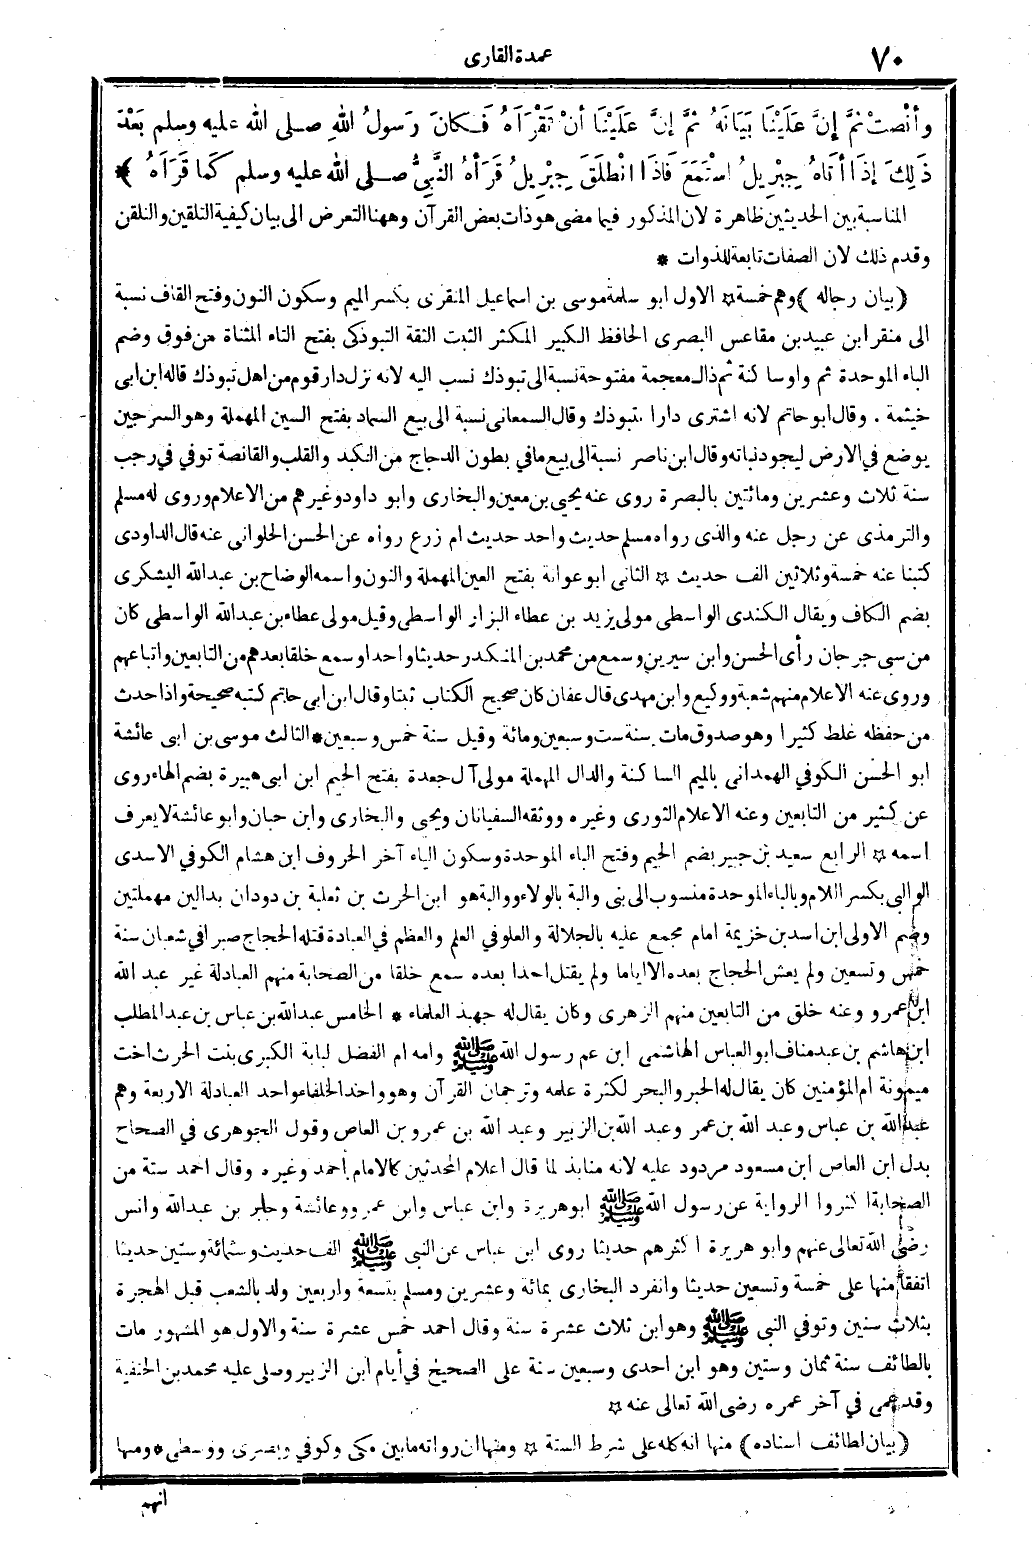 ٧٠
عمدة القارى
وأنْصتْ ثمَّ إنَّ عَلَيْنَا بَيَانَهُ ثمَّ إنَّ عَلَيْنَا أنْ تَقْرَأهُ فَـكانَ رَسولُ اللهِ صـلى الله عليه وسلم بَعْدَ
ذَلِكَ إذَا أتَاهُ جِبْرِيلُ اسْتَمَعَ فَاذَا انْطَلَقَ جِبْرِيلُ قَرَأهُ النَّبِيُّ صـلى الله عليه وسلم كَما قَرَأَهُ ﴾*
المناسبة بين الحديثين ظاهرة لان المذكور فيما مضى هو ذات بعض القرآن وههنا التعرض الى بيان كيفية التلقين والتلقن
وقدم ذلك لان الصفات تابعة للذوات *
(بيان رجاله) وهم خمسة ☆ الاول ابو سلمة موسى بن اسماعيل المنقرى بكسر الميم وسكون النون وفتح القاف نسبة
الى منقر ابن عبيد بن مقاعس البصرى الحافظ الكبير المكثر الثبت الثقة التبوذكى بفتح التاء المثناة من فوق وضم
الباء الموحدة ثم واو ساكنة ثم ذال معجمة مفتوحة نسبة الى تبوذك نسب اليه لانه نزل دار قوم من اهل تبوذك قاله ابن ابى
خيثمة . وقال ابو حاتم لانه اشترى دارا بتبوذك وقال السمعانى نسبة الى بيع السماد بفتح السين المهملة وهو السرجين
يوضع في الارض ليجود نباته وقال ابن ناصر نسبة الى بيع ما في بطون الدجاج من الكبد والقلب والقانصة توفي في رجب
سنة ثلاث وعشرين ومائتين بالبصرة روى عنه يحيى بن معين والبخارى وابو داود وغيرهم من الاعلام وروى له مسلم
والترمذى عن رجل عنه والذى رواه مسلم حديث واحد حديث ام زرع رواه عن الحسن الحلوانى عنه قال الداودى
كتبنا عنه خمسة وثلاثين الف حديث ☆ الثانى ابو عوانة بفتح العين المهملة والنون واسمه الوضاح بن عبدالله اليشكرى
بضم الكاف ويقال الكندى الواسطى مولى يزيد بن عطاء البزار الواسطى وقيل مولى عطاء بن عبدالله الواسطى كان
من سبى جرجان رأى الحسن وابن سيرين وسمع من محمد بن المنكدر حديثا واحدا وسمع خلقا بعدهم من التابعين واتباعهم
وروى عنه الاعلام منهم شعبة ووكيع وابن مهدى قال عفان كان صحيح الكتاب ثبتا وقال ابن ابى حاتم كتبه صحيحة واذا حدث
من حفظه غلط كثيرا وهو صدوق مات سنة ست وسبعين ومائة وقيل سنة خمس وسبعين * الثالث موسى بن ابى عائشة
ابو الحسن الكوفي الهمدانى بالميم الساكنة والدال المهملة مولى آل جعدة بفتح الجيم ابن ابى هبيرة بضم الهاء روى
عن كثير من التابعين وعنه الاعلام الثورى وغيره ووثقه السفيانان ويحيى والبخارى وابن حبان وابو عائشة لا يعرف
اسمه ☆ الرابع سعيد بن جبير بضم الجيم وفتح الباء الموحدة وسكون الياء آخر الحروف ابن هشام الكوفي الاسدى
الوالبى بكسر اللام وبالباء الموحدة منسوب الى بنى والبة بالولاء ووالبة هو ابن الحرث بن ثعلبة بن دودان بدالين مهملتين
وضم الاولى ابن اسد بن خزيمة امام مجمع عليه بالجلالة والعلو في العلم والعظم في العبادة قتله الحجاج صبرا في شعبان سنة
خمس وتسعين ولم يعش الحجاج بعده الا اياما ولم يقتل احدا بعده سمع خلقا من الصحابة منهم العبادلة غير عبد الله
ابن عمرو وعنه خلق من التابعين منهم الزهرى وكان يقال له جهبذ العلماء * الخامس عبدالله بن عباس بن عبد المطلب
ابن هاشم بن عبد مناف ابو العباس الهاشمى ابن عم رسول الله ﷺ وامه ام الفضل لبابة الكبرى بنت الحرث اخت
ميمونة ام المؤمنين كان يقال له الحبر والبحر لكثرة علمه وترجمان القرآن وهو واحد الخلفاء واحد العبادلة الاربعة وهم
عبدالله بن عباس وعبد الله بن عمر وعبد الله بن الزبير وعبد الله بن عمرو بن العاص وقول الجوهرى في الصحاح
بدل ابن العاص ابن مسعود مردود عليه لانه منابذ لما قال اعلام المحدثين كالامام أحمد وغيره وقال احمد ستة من
الصحابة اكثروا الرواية عن رسول الله ﷺ ابوهريرة وابن عباس وابن عمر وعائشة وجابر بن عبدالله وانس
رضى الله تعالى عنهم وابو هريرة اكثرهم حديثا روى ابن عباس عن النبى ﷺ الف حديث وستمائة وستين حديثا
اتفقا منها على خمسة وتسعين حديثا وانفرد البخارى بمائة وعشرين ومسلم بتسعة واربعين ولد بالشعب قبل الهجرة
بثلاث سنين وتوفي النبى ﷺ وهو ابن ثلاث عشرة سنة وقال احمد خمس عشرة سنة والاول هو المشهور مات
بالطائف سنة ثمان وستين وهو ابن احدى وسبعين سنة على الصحيح في أيام ابن الزبير وصلى عليه محمد بن الحنفية
وقد عمى في آخر عمره رضى الله تعالى عنه ☆
(بيان لطائف اسناده) منها انه كله على شرط الستة ☆ ومنها ان رواته ما بين مكى وكوفي وبصرى وواسطى * ومنها
انهم